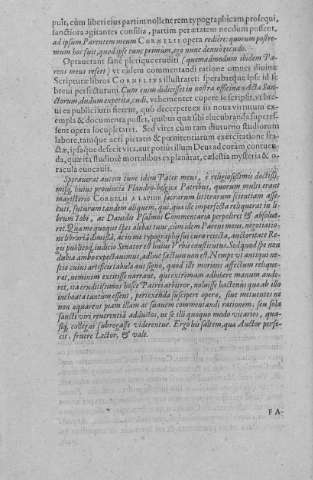 post, cum liberi eius partim nollent rem typographicam prosequi,
sanctiora agitantes consilia, partim per ætatem necdum possent,
ad ipsum Parentem meum CORNELII opera rediere: quorum postre-
mum hoc fuit, quod ipse tunc primùm, ego nunc denuò recudo.
Optauerant sanè plerique eruditi (quemadmodum ibidem Pa-
rens meus refert) vt eulem commentandi ratione omnes diuinæ
Scripturæ libros CORNELIVS illustraret: sperabatque ipse id se
breui perfecturum. Cum enim dididisset in nostra officina Acta San-
ctorum dudum expetita, cudi, vehementer cupere se scripsit, vt bea-
ti ea publici iuris fierent, quò decerpere ex iis noua virtutum ex-
empla & documenta posset, quibus quæ sibi elucubranda superes-
sent opera locupletaret. Sed vires cum tam diuturno studiorum
labore, tamque acri pietatis & pœnitentiarum exercitatione fra-
ctæ, ipsaque defecit vita, aut potiùs illum Deus ad coram contuen-
da, quæ iis, studiosè mortalibus explanârat, cælestia mysteria & o-
racula euocauit.
Sperauerat autem tunc idem Pater meus, è religiosissimis doctissi-
misq; huius prouinciæ Flandro-belgicæ Patribus, quorum multi erant
magisterio CORNELII A LAPIDE sacrarum litterarum scientiam asse-
cuti, futurum tandem aliquem, qui, quæ ille imperfecta reliquerat in li-
brum Iob, ac Dauidis Psalmos Commentaria perpoliret & absolue-
ret. Quamquam que spes alebat tunc, cùm idem Parens meus, negotiatio-
ne libraria dimissâ, ac in me typographiæ suæ cura reiecta, auctoritate Re-
giâ publicus, iudicio Senator est huius Vrbis constitutus. Sed quod spe non
dubia ambo expectauimus, adhuc factum non est. Nempe vt antiquo ne-
mo cuius artificis tabula aut signo, quod illi morions affectum relique-
rat, neminem extitisse narrant, qui extremam adhibere manum aude-
ret, ita eruditissimos hosce Patres arbitror, noluisse hactenus quæ ab illo
inchoata tantum essent, pertexenda suscipere opera, siue metuentes ne
non æquarent piam illam ac suauem commentandi rationem, seu sola
sancti viri reuerentiâ adductos, ne se illi quoquo modo vicarios, qua-
siq; collegas subrogasse viderentur. Ergo his saltem, quæ Auctor perfe-
cit, fruere Lector, & vale.
FA-